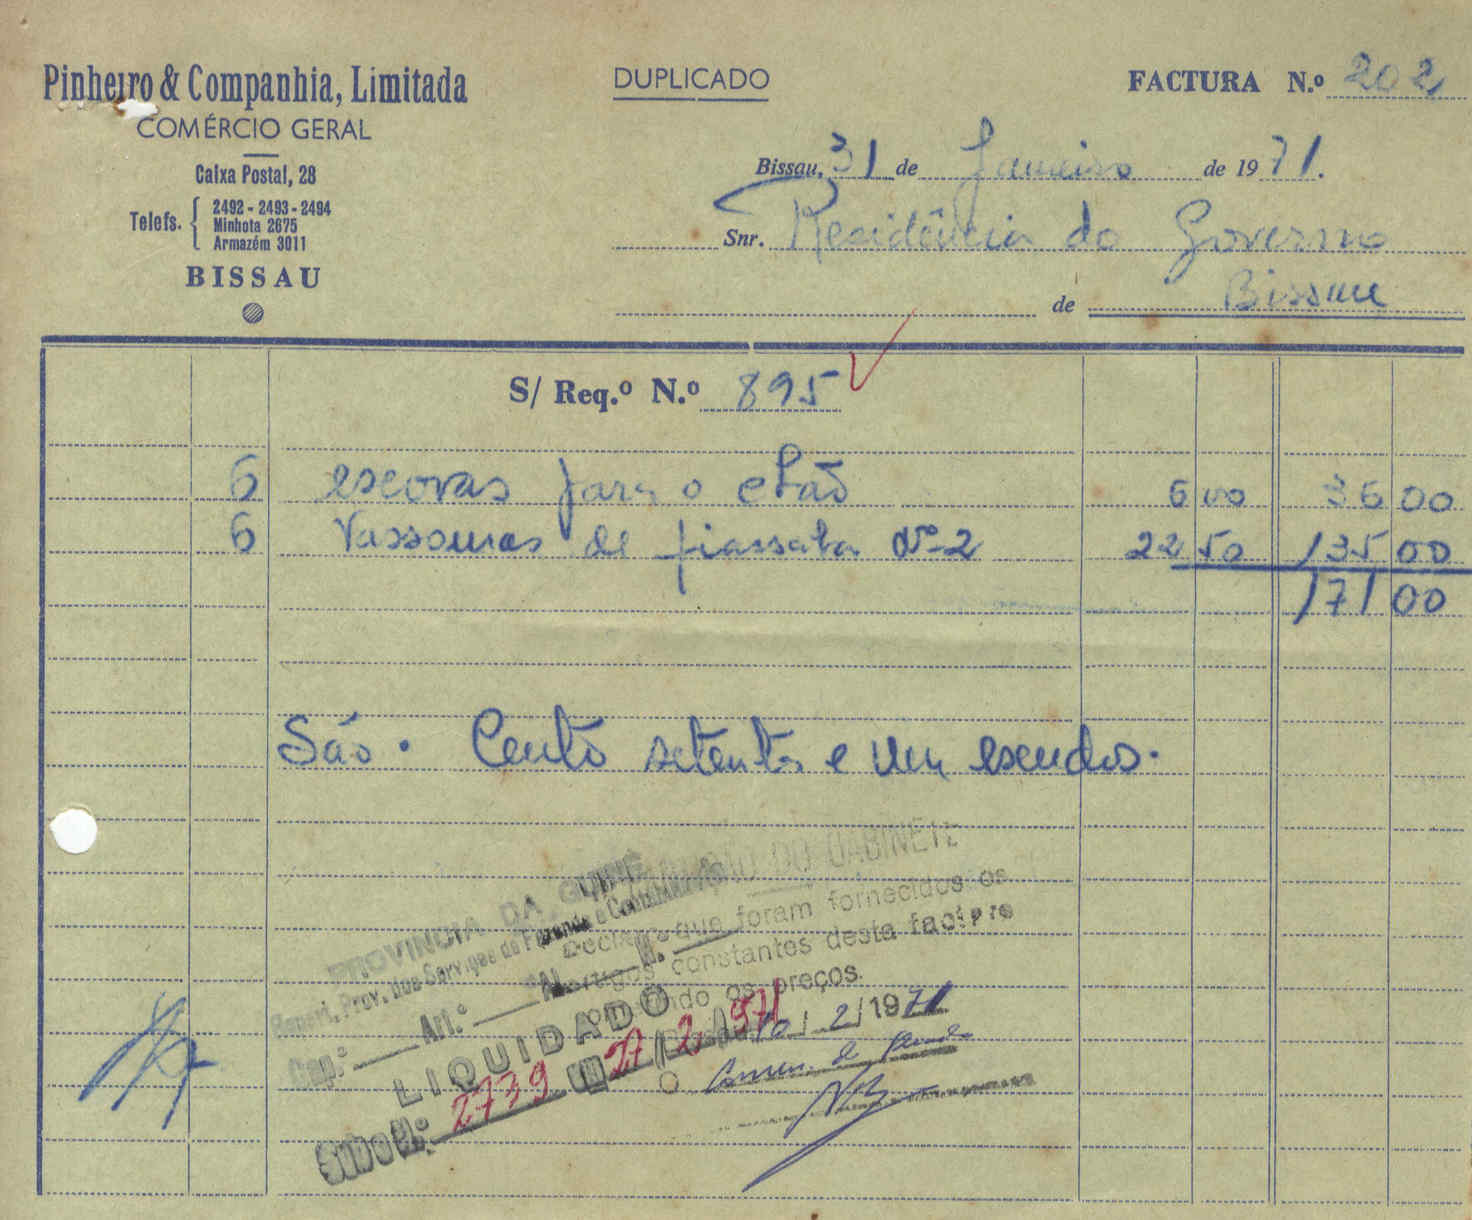 Pinheiro & Companhia, Limitada
COMÉRCIO GERAL
Caixa Postal, 28
Telefs. { 2492 - 2493 - 2494
Minhota 2675
Armazém 3011
BISSAU
DUPLICADO
FACTURA N.º 202
Bissau, 31 de Janeiro de 1971.
Snr. Residência do Governo
de Bissau
S/ Req.º N.º 895
6 escovas para o chão 6 00 36 00
6 Vassouras de piassaba Nº 2 22 50 135 00
171 00
São. Cento setenta e um escudos.
DO GABINETE
PROVINCIA DA GUINÉ
Repart. Prov. dos Serviços de Fazenda e Contabilidade
Declaro que foram fornecidos os
artigos constantes desta factura
os preços.
Cap.º Art.º N.º
LIQUIDADO
10/2/1971
2739 EM 27/2/971
O